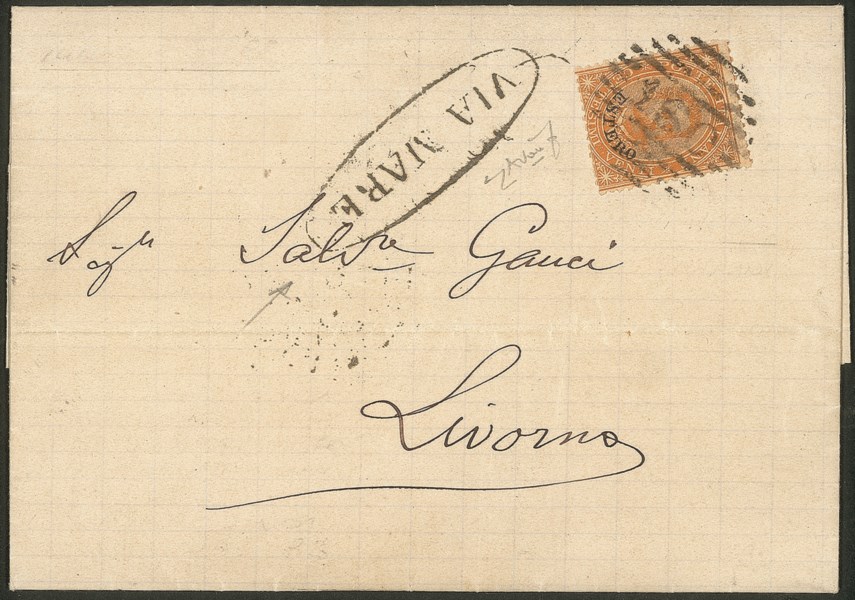 VIA MARE
ESTERO
Sigr Salvre Gauci
Livorno